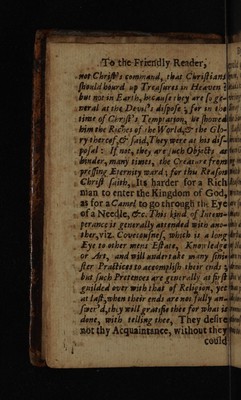 To the Friendly Reader,
not Christ's command, that Christians
should hourd up Treasures in Heaven :
but not in Earth, because they are so ge-
neral at the Devil's dispose ; for in the
time of Christ's Temptation, he shewed
him the Riches of the World, & the Glo-
ry thereof, & said, They were at his dis-
posal : If not, they are such Objects as
hinder, many times, the Creature from
pressing Eternity ward ; for this Reason
Christ saith, Its harder for a Rich
man to enter the Kingdom of God,
as for a Camel to go through the Eye
of a Needle, &c. This kind of Intem-
perance is generally attended with ano-
ther, viz. Covetousnes, which is a long
Eye to other mens Estate, Knowledge
or Art, and will undertake many sini-
ster Practices to accomplish their ends ;
but such Pretences are generally at first
guilded over with that of Religion, yet
at last, when their ends are not fully an-
swer'd, they will gratifie thee for what is
done, with telling thee, They desire
not thy Acquaintance, without they
could